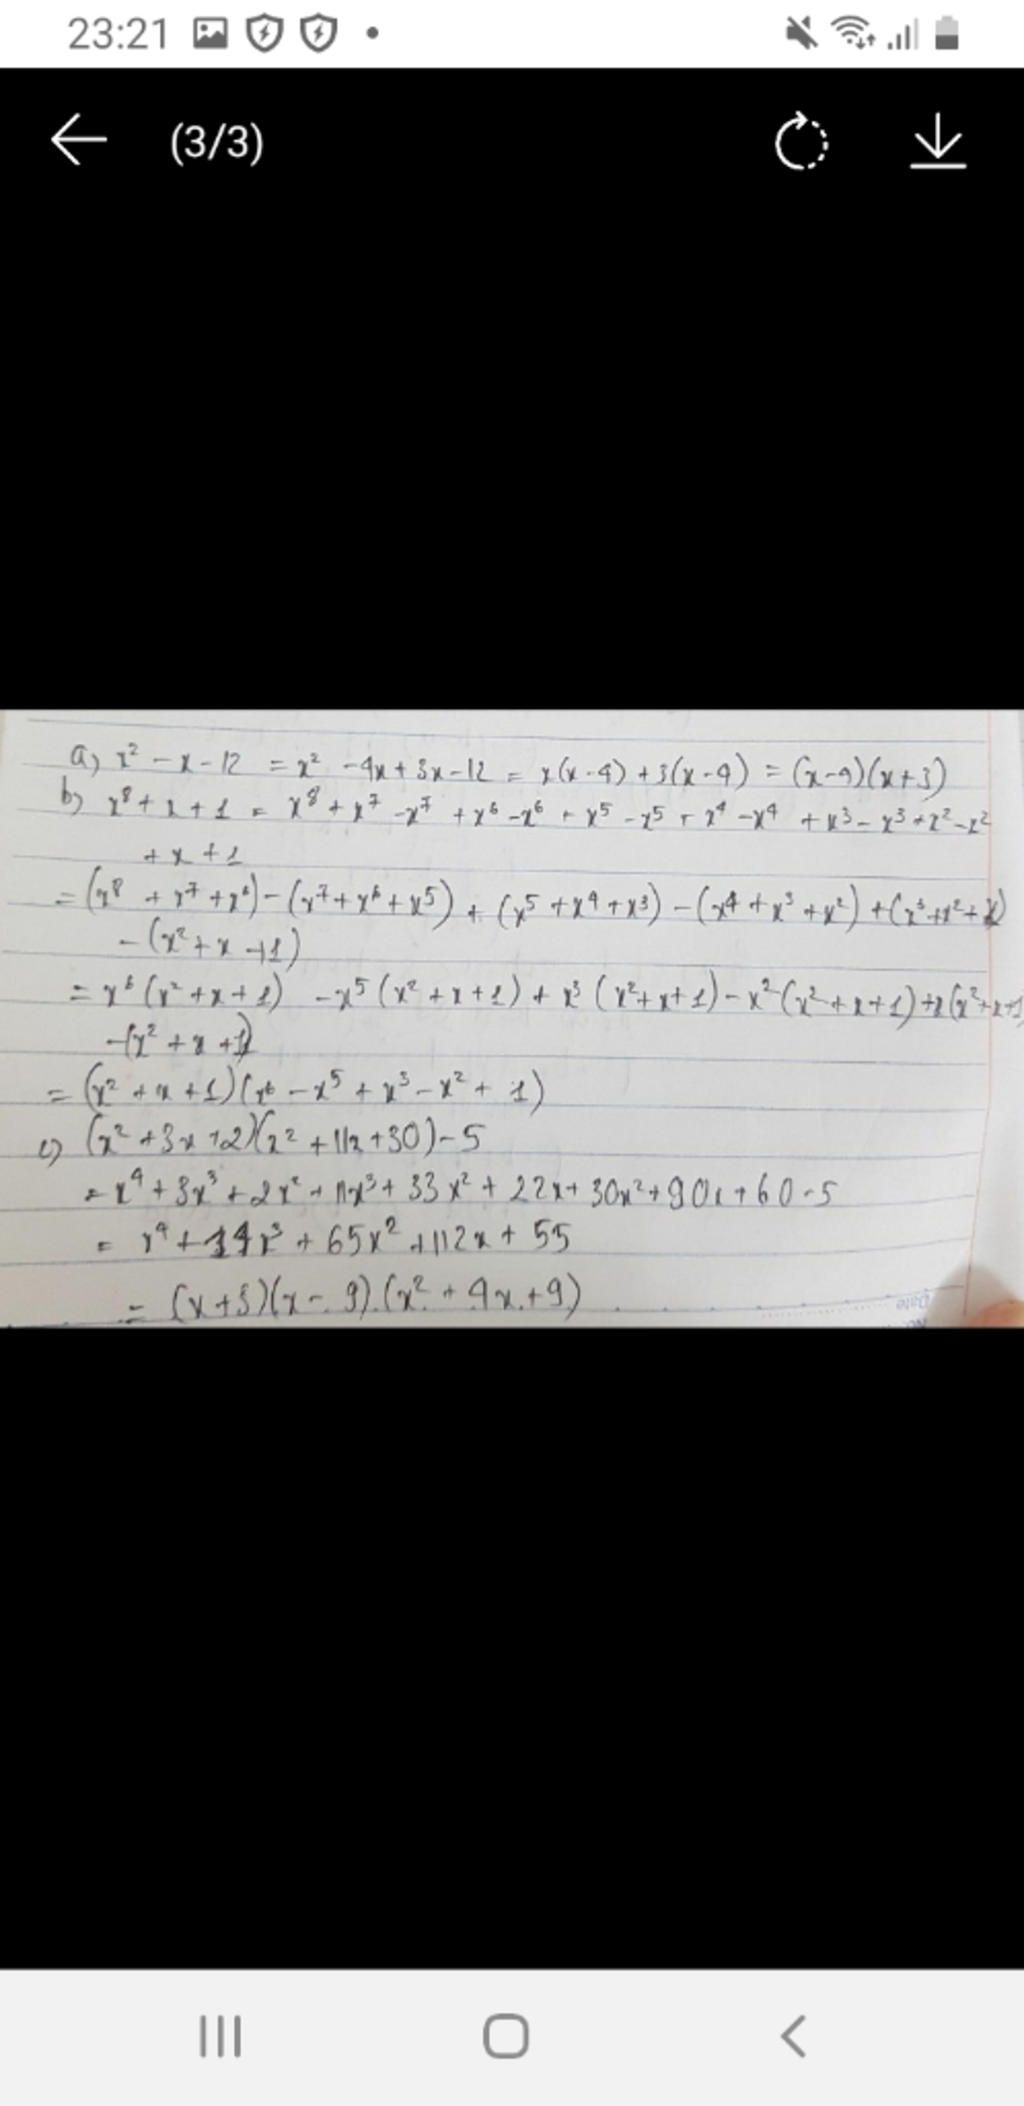 23:21
(3/3)
a) x² - x - 12 = x² - 4x + 3x - 12 = x(x-4) + 3(x-4) = (x-4)(x+3)
b) x⁸ + x + 1 = x⁸ + x⁷ - x⁷ + x⁶ - x⁶ + x⁵ - x⁵ + x⁴ - x⁴ + x³ - x³ + x² - x²
+ x + 1
= (x⁸ + x⁷ + x⁶) - (x⁷ + x⁶ + x⁵) + (x⁵ + x⁴ + x³) - (x⁴ + x³ + x²) + (x³ + x² + x)
- (x² + x + 1)
= x⁶(x² + x + 1) - x⁵(x² + x + 1) + x³(x² + x + 1) - x²(x² + x + 1) + x(x² + x + 1)
- (x² + x + 1)
= (x² + x + 1)(x⁶ - x⁵ + x³ - x² + 1)
c) (x² + 3x + 2)(x² + 11x + 30) - 5
= x⁴ + 3x³ + 2x² + 11x³ + 33x² + 22x + 30x² + 90x + 60 - 5
= x⁴ + 14x³ + 65x² + 112x + 55
= (x+5)(x-9).(x² + 4x + 9)
Date
No.